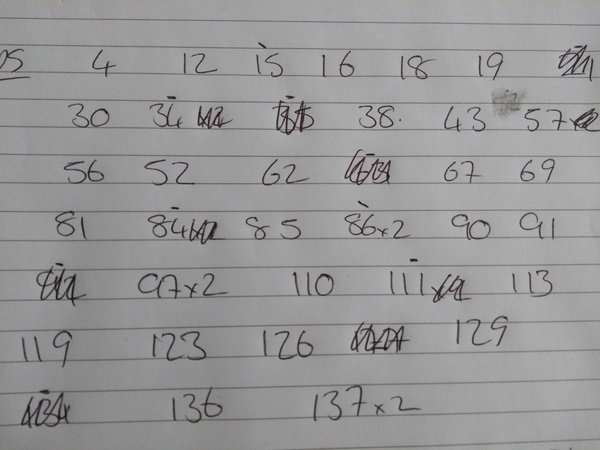 4 12 15 16 18 19
30 34 38. 43 57
56 52 62 67 69
81 84 85 86x2 90 91
97x2 110 111 113
119 123 126 129
136 137x2